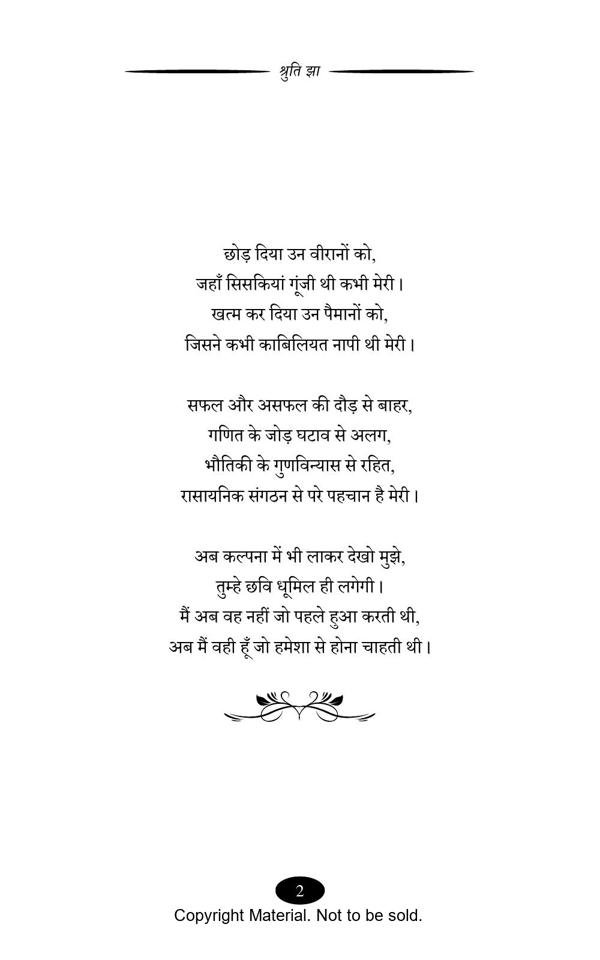 श्रुति झा
छोड़ दिया उन वीरानों को,
जहाँ सिसकियां गूंजी थी कभी मेरी।
खत्म कर दिया उन पैमानों को,
जिसने कभी काबिलियत नापी थी मेरी।
सफल और असफल की दौड़ से बाहर,
गणित के जोड़ घटाव से अलग,
भौतिकी के गुणविन्यास से रहित,
रासायनिक संगठन से परे पहचान है मेरी।
अब कल्पना में भी लाकर देखो मुझे,
तुम्हे छवि धूमिल ही लगेगी।
मैं अब वह नहीं जो पहले हुआ करती थी,
अब मैं वही हूँ जो हमेशा से होना चाहती थी।
2
Copyright Material. Not to be sold.